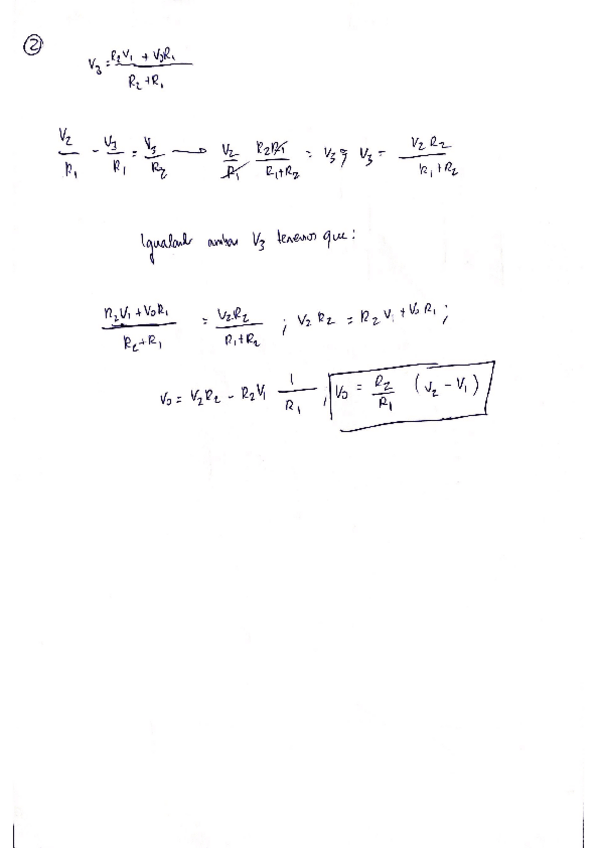 ②
V₃ = (R₂V₁ + V₀R₁)/(R₂ + R₁)
V₂/R₁ - V₃/R₁ = V₃/R₂ → V₂/R₁ R₂R₁/(R₁+R₂) = V₃ ; V₃ = V₂R₂/(R₁+R₂)
Igualando ambas V₃ tenemos que:
(R₂V₁ + V₀R₁)/(R₂+R₁) = V₂R₂/(R₁+R₂) ; V₂R₂ = R₂V₁ + V₀R₁ ;
V₀ = V₂R₂ - R₂V₁ 1/R₁ , V₀ = R₂/R₁ (V₂ - V₁)